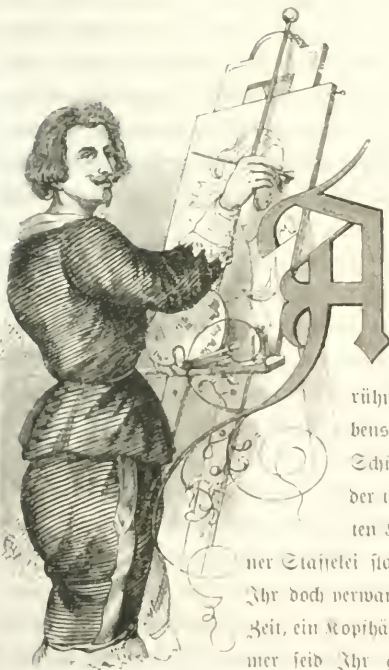 A
rühm
bens
Schü
der t
ten
ner Staffelei sta
Ihr doch verwan
Zeit, ein Kopfhä
mer seid Ihr